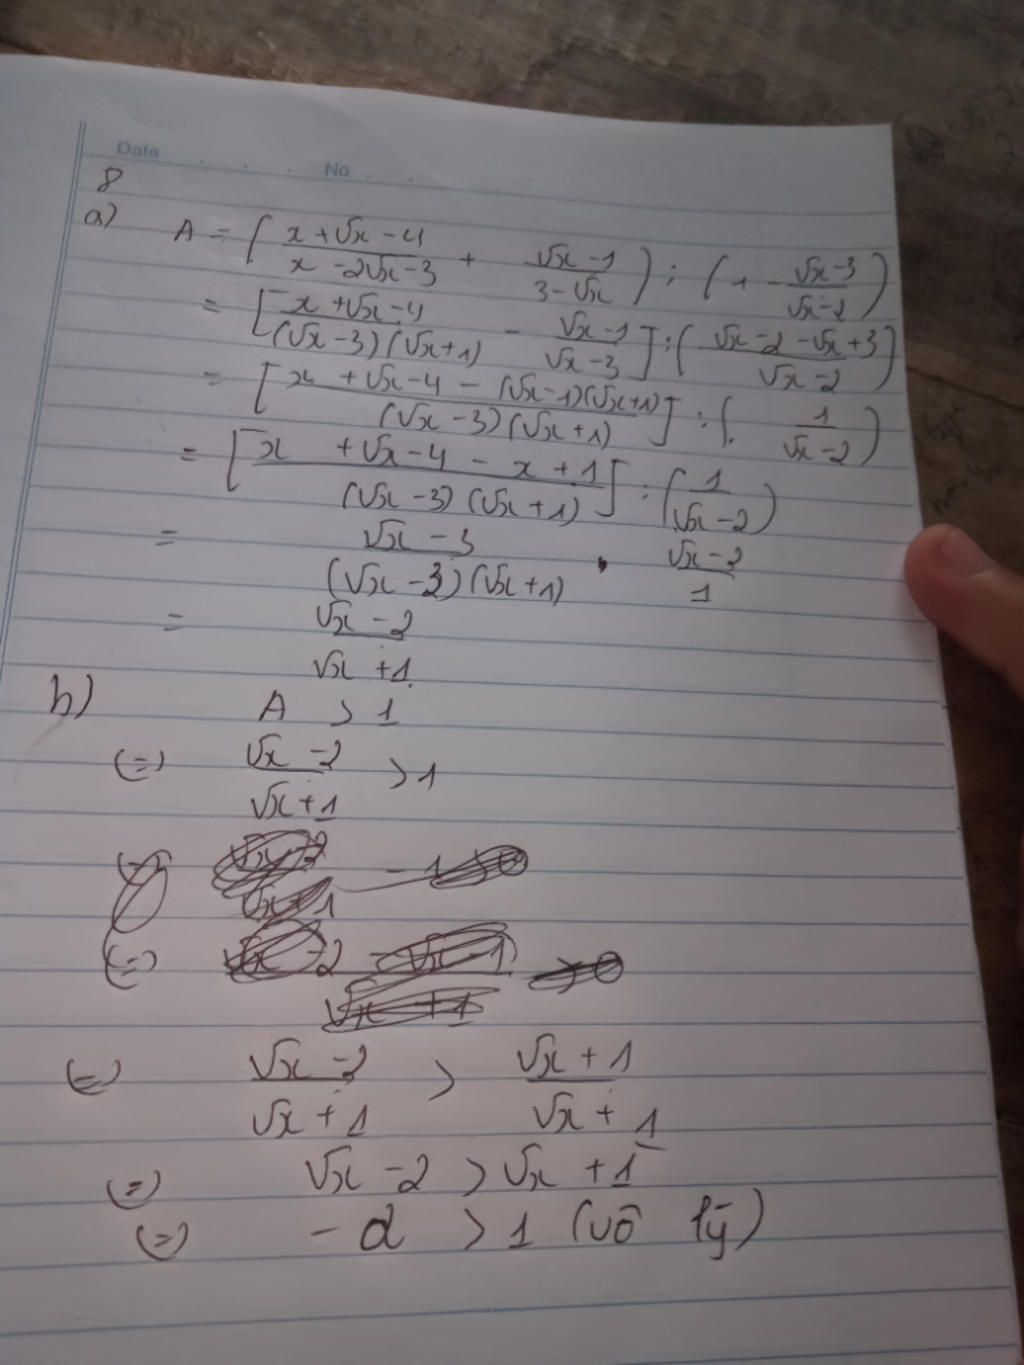 Date . . . No . .
8
a) A = ( (x + √x - 4)/(x - 2√x - 3) + (√x - 1)/(3 - √x) ) : ( 1 - (√x - 3)/(√x - 2) )
= [ (x + √x - 4)/((√x - 3)(√x + 1)) - (√x - 1)/(√x - 3) ] : ( (√x - 2 - √x + 3)/(√x - 2) )
= [ (x + √x - 4 - (√x - 1)(√x + 1))/((√x - 3)(√x + 1)) ] : ( 1/(√x - 2) )
= [ (x + √x - 4 - x + 1)/((√x - 3)(√x + 1)) ] : ( 1/(√x - 2) )
= (√x - 3)/((√x - 3)(√x + 1)) . (√x - 2)/1
= (√x - 2)/(√x + 1)
b) A > 1
(=) (√x - 2)/(√x + 1) > 1
(=) (√x - 2)/(√x + 1) > (√x + 1)/(√x + 1)
(=) √x - 2 > √x + 1
(=) - 2 > 1 (vô lý)